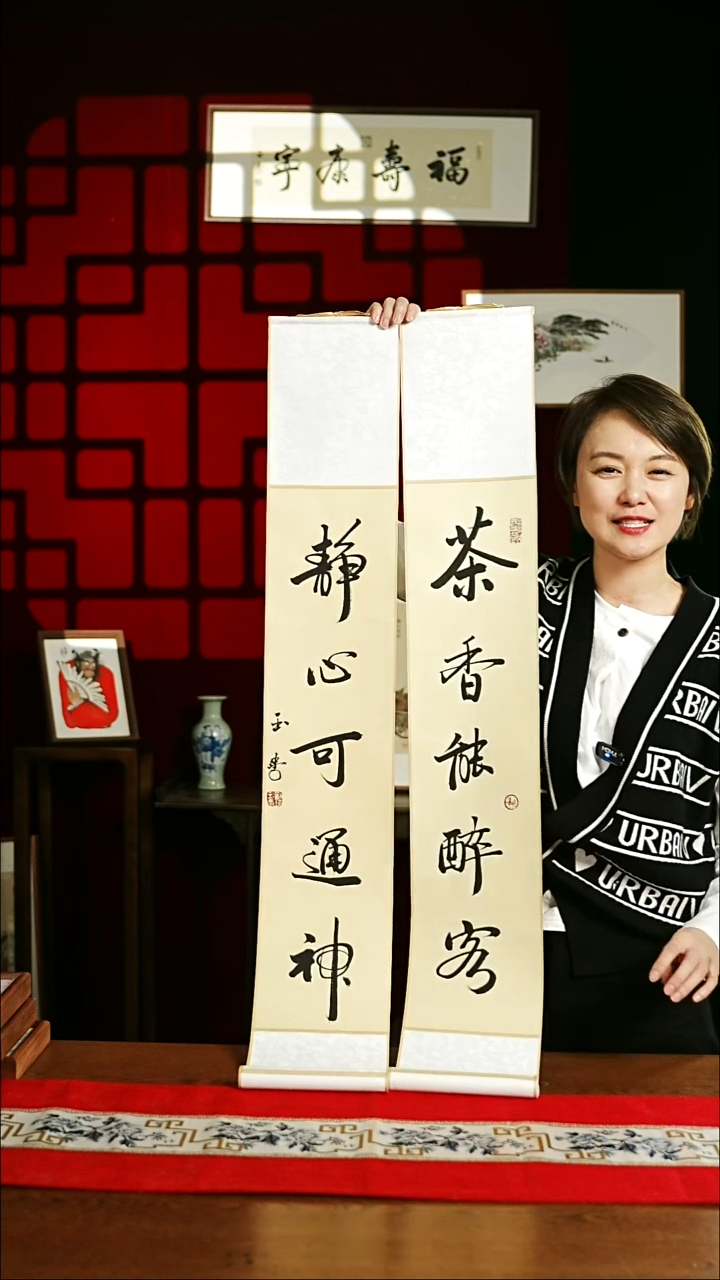 福壽康寧
茶香能醉客
静心可通神
玉秀
URBAN
URBAN
URBAN